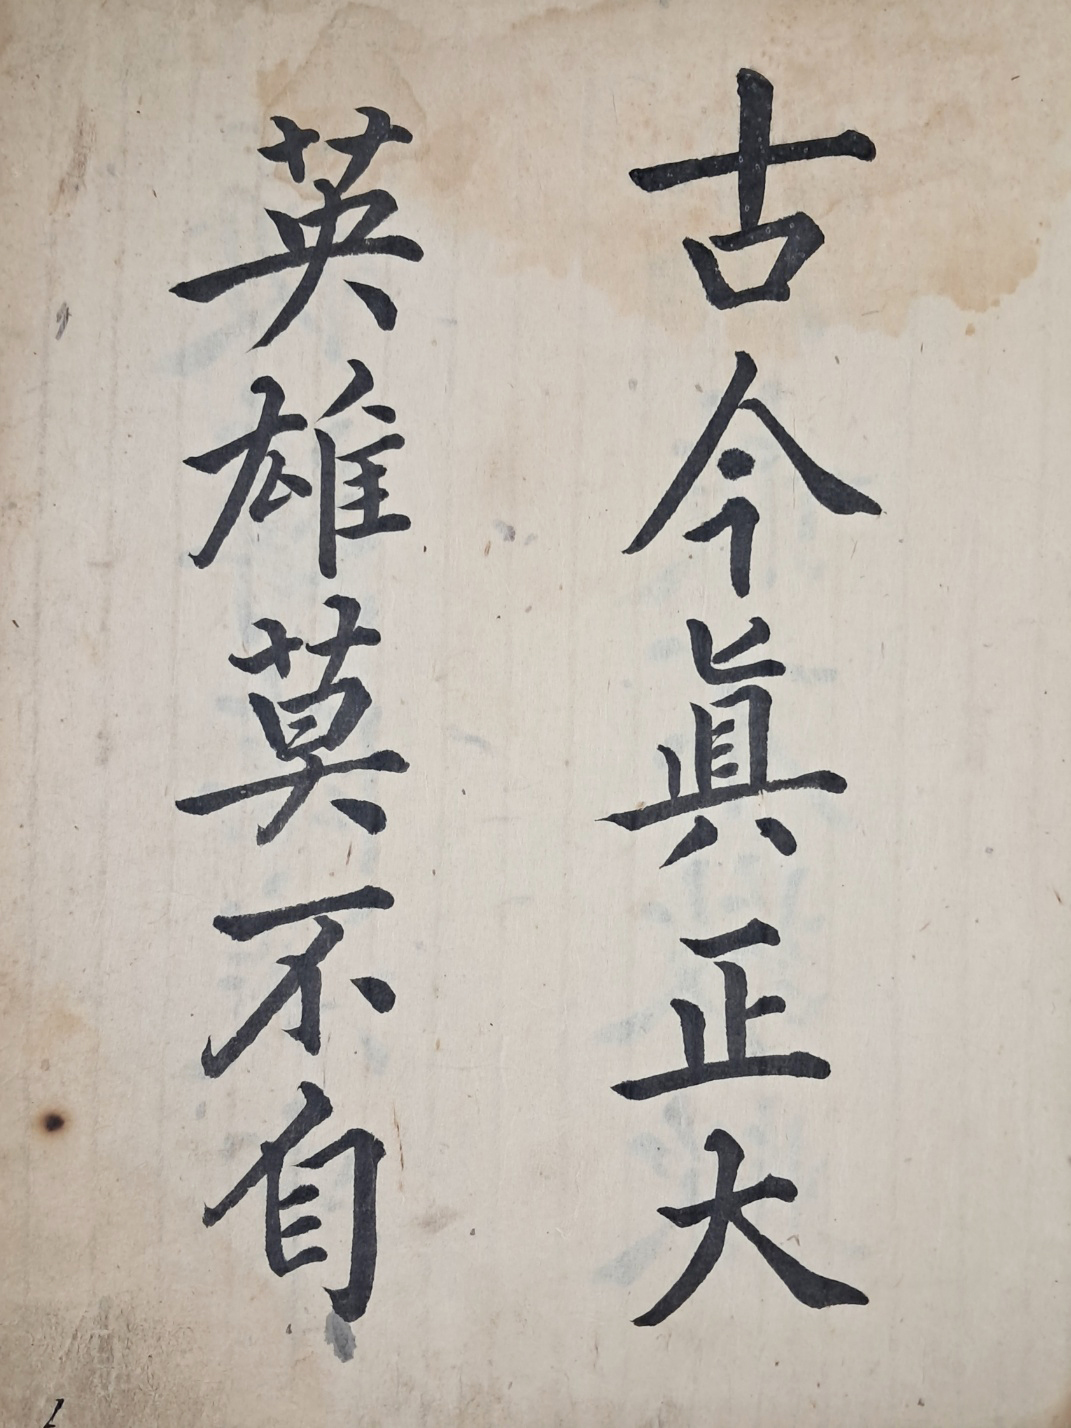 古今眞正大
英雄莫不自